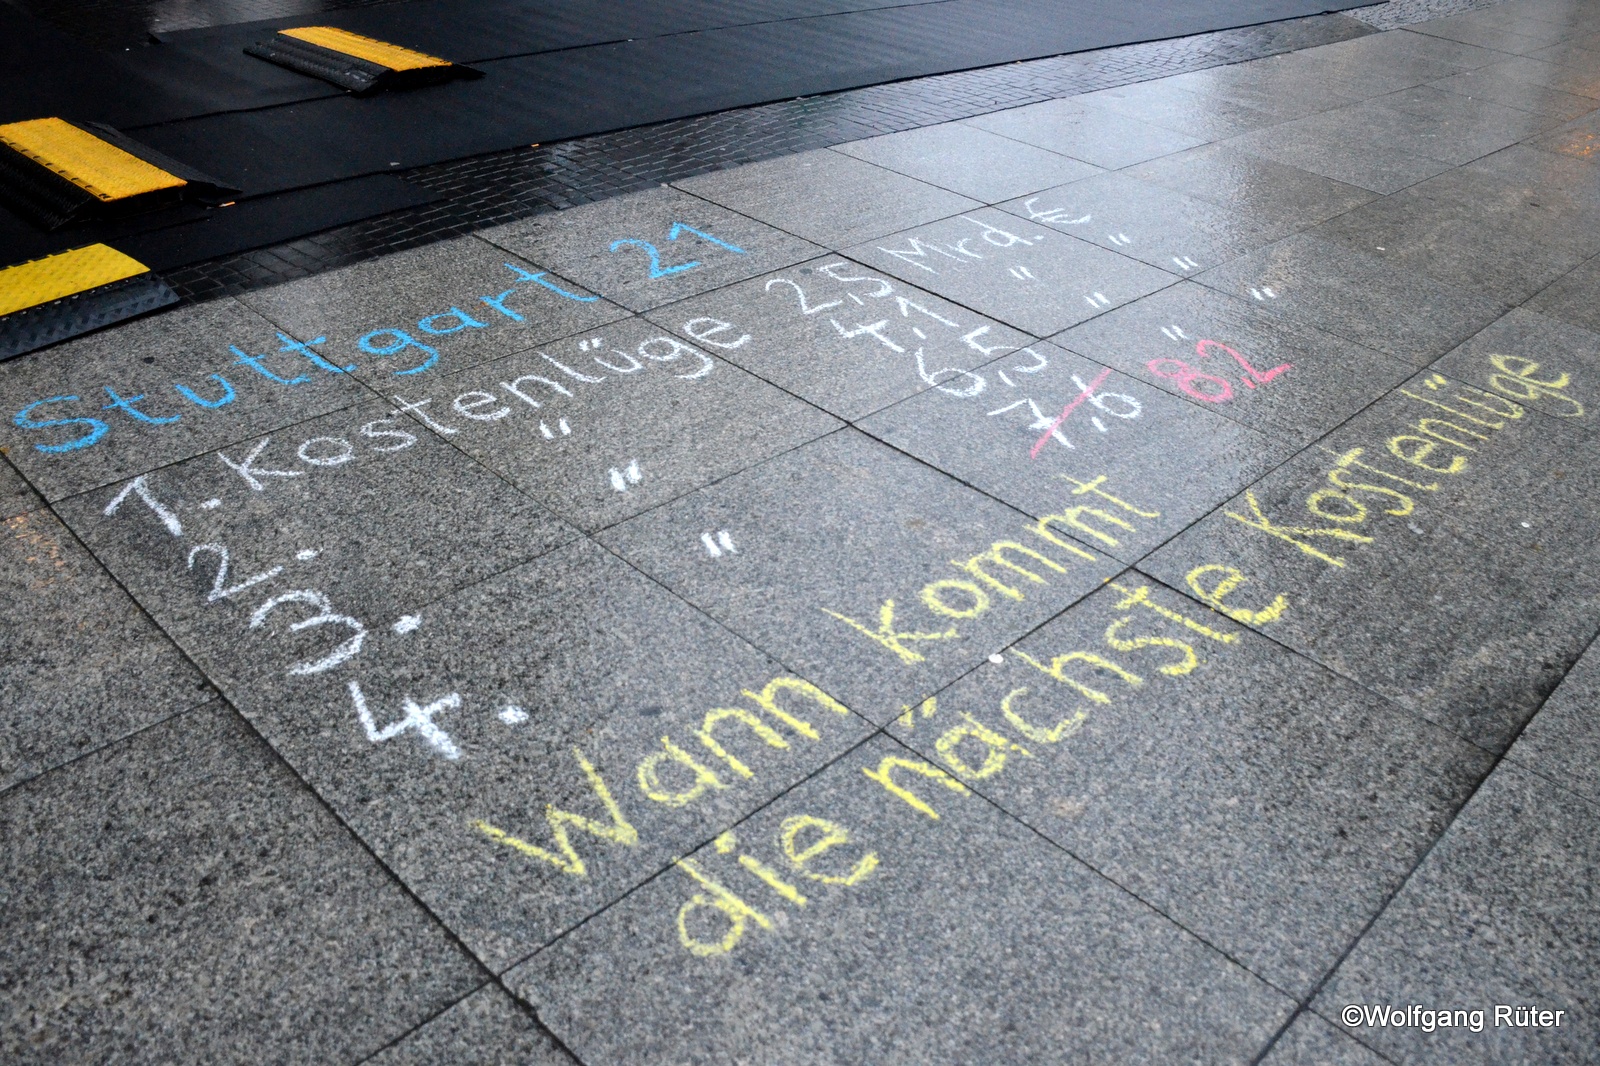 Stuttgart 21
1. Kostenlüge 2,5 Mrd. €
2. " 4,1 " "
3. " 6,5 " "
4. " 7,6 8,2 " "
Wann kommt
die nächste Kostenlüge
©Wolfgang Rüter